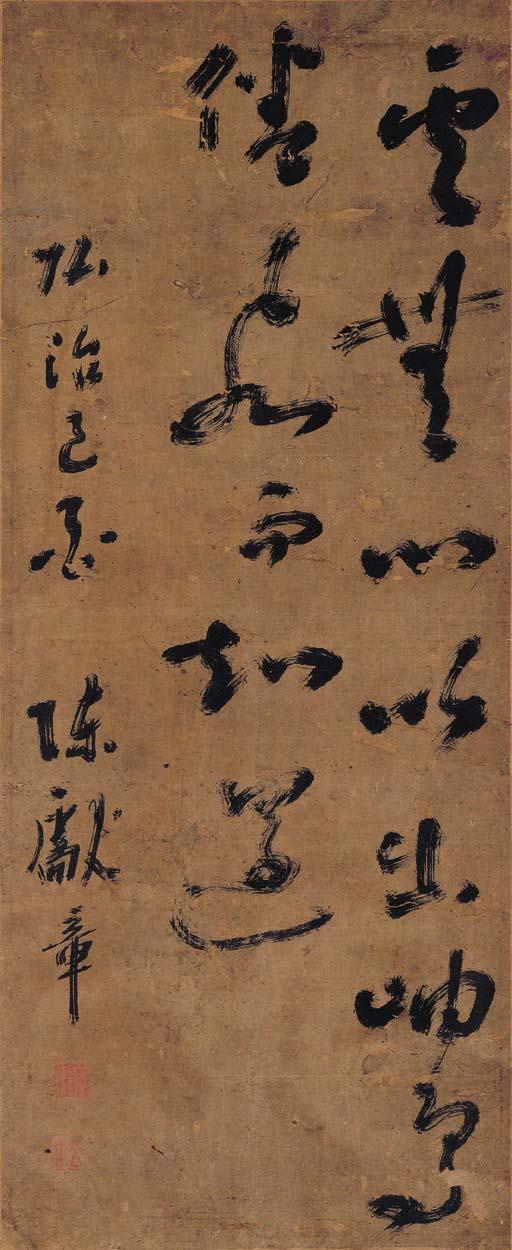 雲無心以出岫鳥
倦飛而知還
弘治己酉 陳獻章